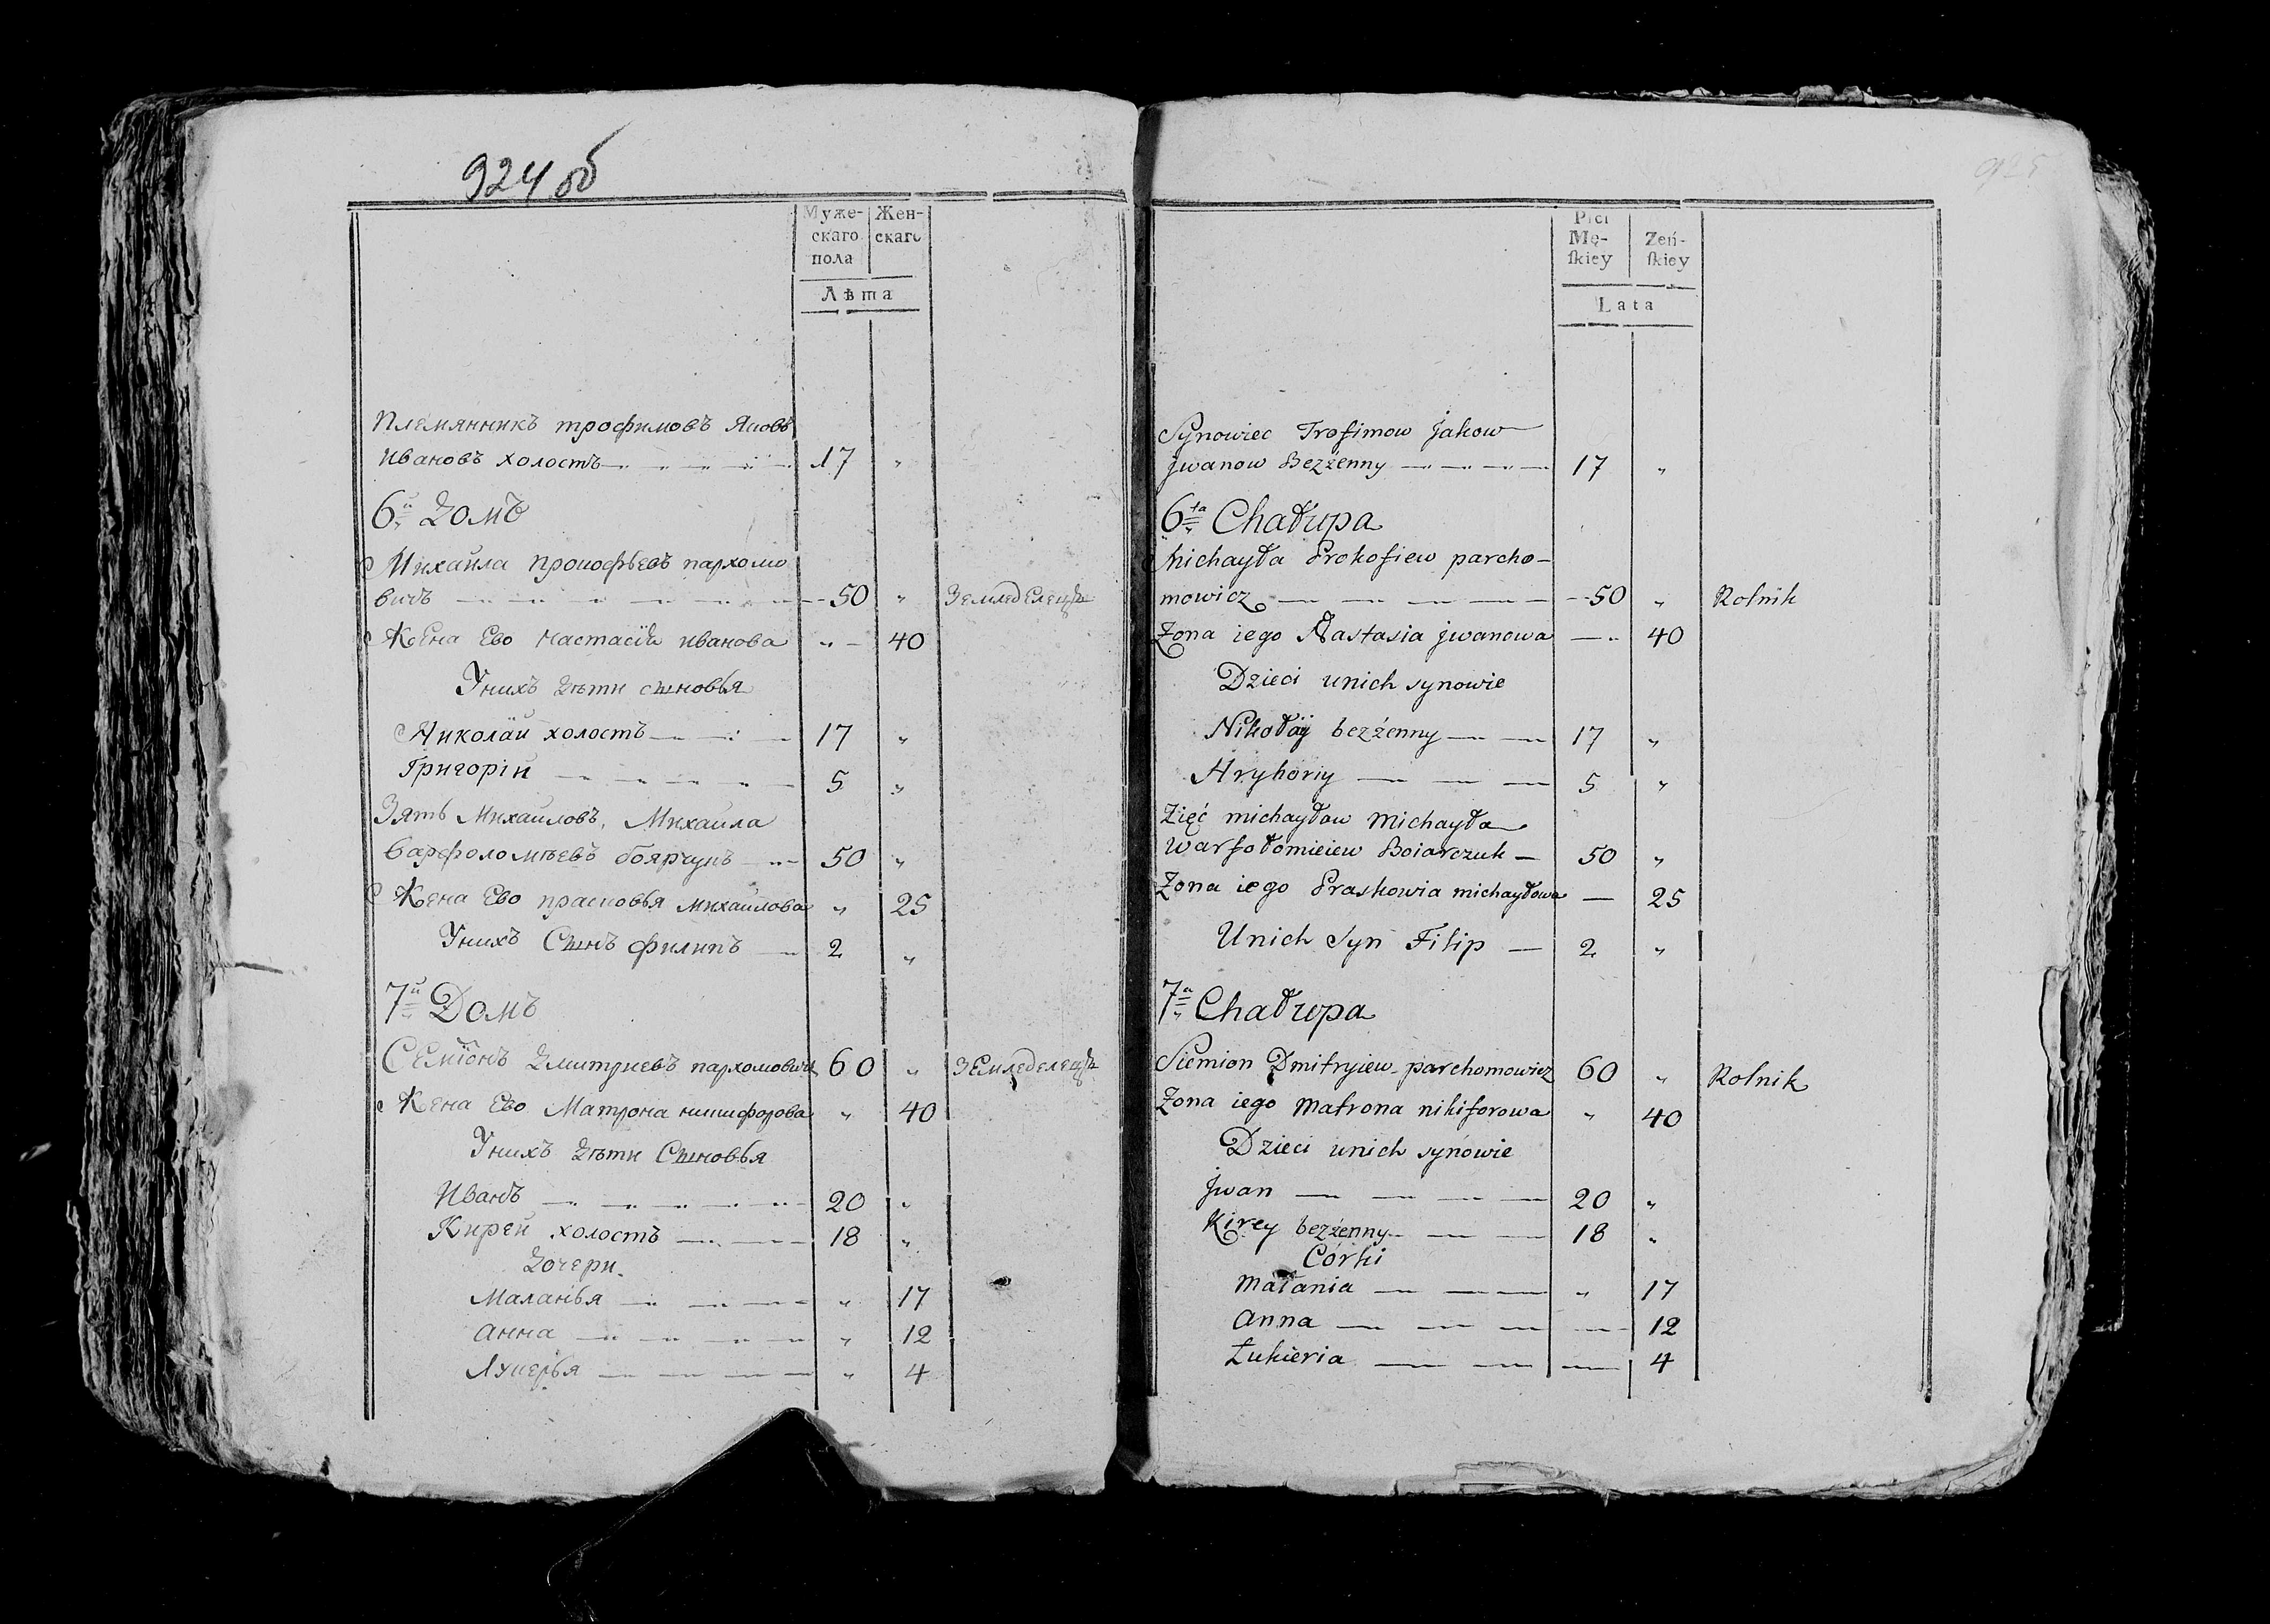 924 об
Муже-
скаго
пола
Жен-
скаго
Лѣта
Племянникъ трофимовъ Яковъ
Ивановъ холостъ 17 "
6й Домъ
Михаила прокофьевъ пархомо
вичъ 50 " Земледелецъ
Жена Ево настасiя иванова " 40
Унихъ дѣти сыновья
Николай холостъ 17 "
Григорiй 5 "
Зять Михайловъ, Михаила
Варфоломѣевъ боярчукъ 50 "
Жена Ево прасковья михаилова " 25
Унихъ Сынъ филипъ 2 "
7й Домъ
Семiонъ Дмитриевъ пархомовичъ 60 " Земледелецъ
Жена Ево Матрона никифорова " 40
Унихъ дѣти Сыновья
Иванъ 20 "
Кирей холостъ 18 "
Дочери
Маланья " 17
анна " 12
Лукерья " 4
925
Płci
Mę-
ſkiey
Zeń-
ſkiey
Lata
Synowiec Trofimow Jakow
Jwanow Bezżenny 17 "
6ta Chałupa
Michayła Prokofiew parcho-
mowicz 50 " Rolnik
Zona iego Nastasia jwanowa 40
Dzieci unich synowie
Nikołay bezżenny 17 "
Hryhoriy 5 "
Zięć michayłow michayła
Warfołomieiew Boiarczuk 50 "
Zona iego Praskowia michayłowa 25
Unich Syn Filip 2 "
7a Chałupa
Siemion Dmitryiew parchomowicz 60 " Rolnik
Zona iego Matrona nikiforowa " 40
Dzieci unich synowie
Jwan 20 "
Kirey bezżenny 18 "
Córki
Małania " 17
Anna 12
Łukieria 4